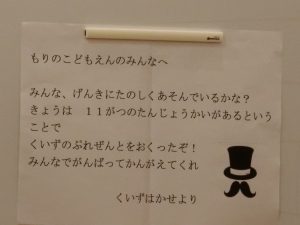 もりのこどもえんのみんなへ
みんな、げんきにたのしくあそんでいるかな？
きょうは　１１がつのたんじょうかいがあるという
ことで
くいずのぷれぜんとをおくったぞ！
みんなでがんばってかんがえてくれ
くいずはかせより